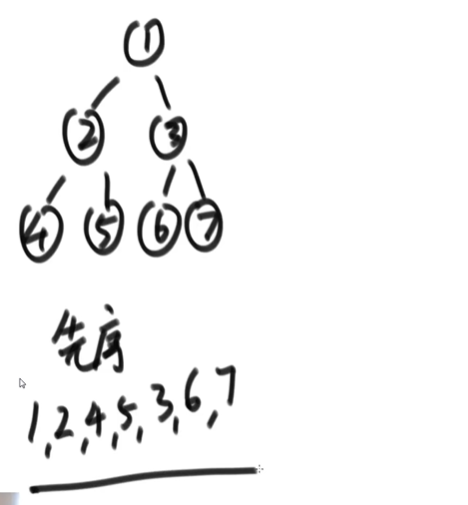 1
2 3
4 5 6 7
先序
1,2,4,5,3,6,7